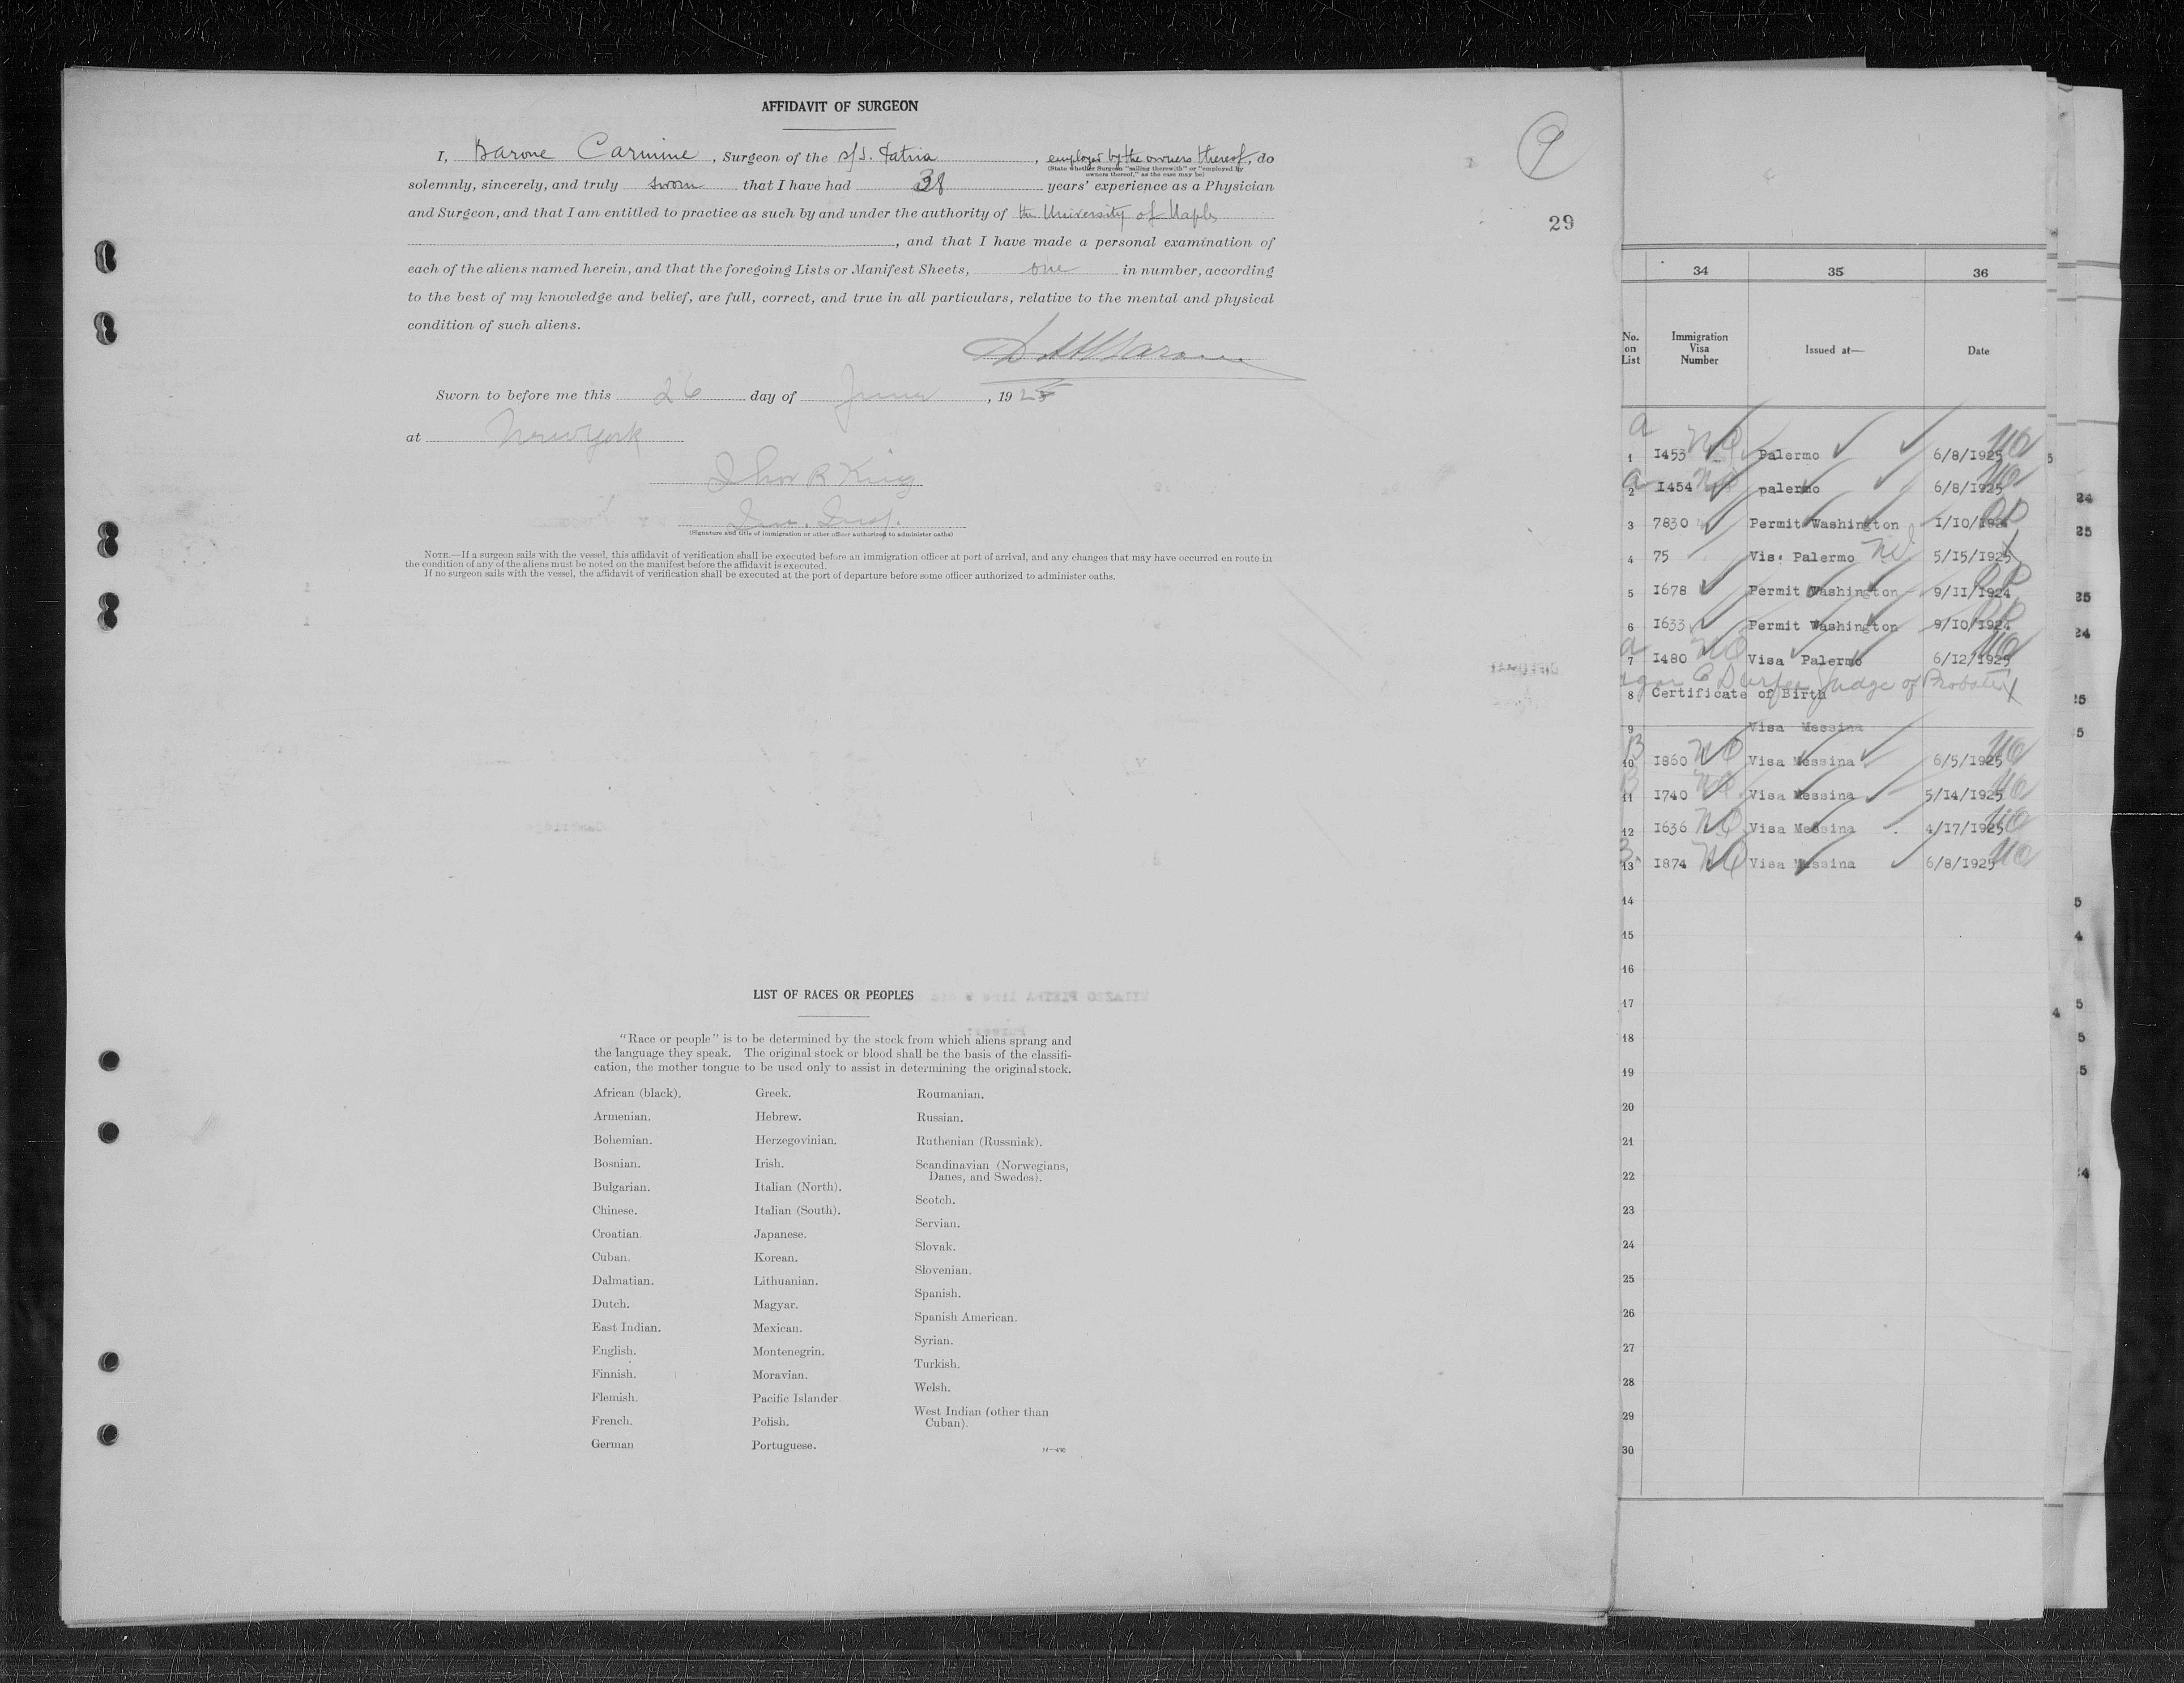 AFFIDAVIT OF SURGEON
9
29
I, Barone Carmine, Surgeon of the s/s. Patria, employed by the owners thereof, do
(State whether Surgeon "sailing therewith" or "employed by
owners thereof," as the case may be)
solemnly, sincerely, and truly sworn that I have had 38 years' experience as a Physician
and Surgeon, and that I am entitled to practice as such by and under the authority of the University of Naples
, and that I have made a personal examination of
each of the aliens named herein, and that the foregoing Lists or Manifest Sheets, one in number, according
to the best of my knowledge and belief, are full, correct, and true in all particulars, relative to the mental and physical
condition of such aliens.
Sworn to before me this 26 day of June, 1925
at New York
King
(Signature and title of immigration or other officer authorized to administer oaths)
NOTE.—If a surgeon sails with the vessel, this affidavit of verification shall be executed before an immigration officer at port of arrival, and any changes that may have occurred en route in
the condition of any of the aliens must be noted on the manifest before the affidavit is executed.
If no surgeon sails with the vessel, the affidavit of verification shall be executed at the port of departure before some officer authorized to administer oaths.
LIST OF RACES OR PEOPLES
"Race or people" is to be determined by the stock from which aliens sprang and
the language they speak. The original stock or blood shall be the basis of the classifi-
cation, the mother tongue to be used only to assist in determining the original stock.
African (black).
Armenian.
Bohemian.
Bosnian.
Bulgarian.
Chinese.
Croatian.
Cuban.
Dalmatian.
Dutch.
East Indian.
English.
Finnish.
Flemish.
French.
German
Greek.
Hebrew.
Herzegovinian.
Irish.
Italian (North).
Italian (South).
Japanese.
Korean.
Lithuanian.
Magyar.
Mexican.
Montenegrin.
Moravian.
Pacific Islander
Polish.
Portuguese.
Roumanian.
Russian.
Ruthenian (Russniak).
Scandinavian (Norwegians,
Danes, and Swedes).
Scotch.
Servian.
Slovak.
Slovenian.
Spanish.
Spanish American.
Syrian.
Turkish.
Welsh.
West Indian (other than
Cuban).
34 35 36
No. on List Immigration Visa Number Issued at— Date
1 1453 Palermo 6/8/1925
2 1454 palermo 6/8/1925
3 7830 Permit Washington 1/10/1924
4 75 Vis: Palermo 5/15/1925
5 1678 Permit Washington 9/11/1924
6 1633 Permit Washington 9/10/1924
7 1480 Visa Palermo 6/12/1925
Judge of Probate
8 Certificate of Birth
9 Visa Messina
10 1860 Visa Messina 6/5/1925
11 1740 Visa Messina 5/14/1925
12 1636 Visa Messina 4/17/1925
13 1874 Visa Messina 6/8/1925
14
15
16
17
18
19
20
21
22
23
24
25
26
27
28
29
30